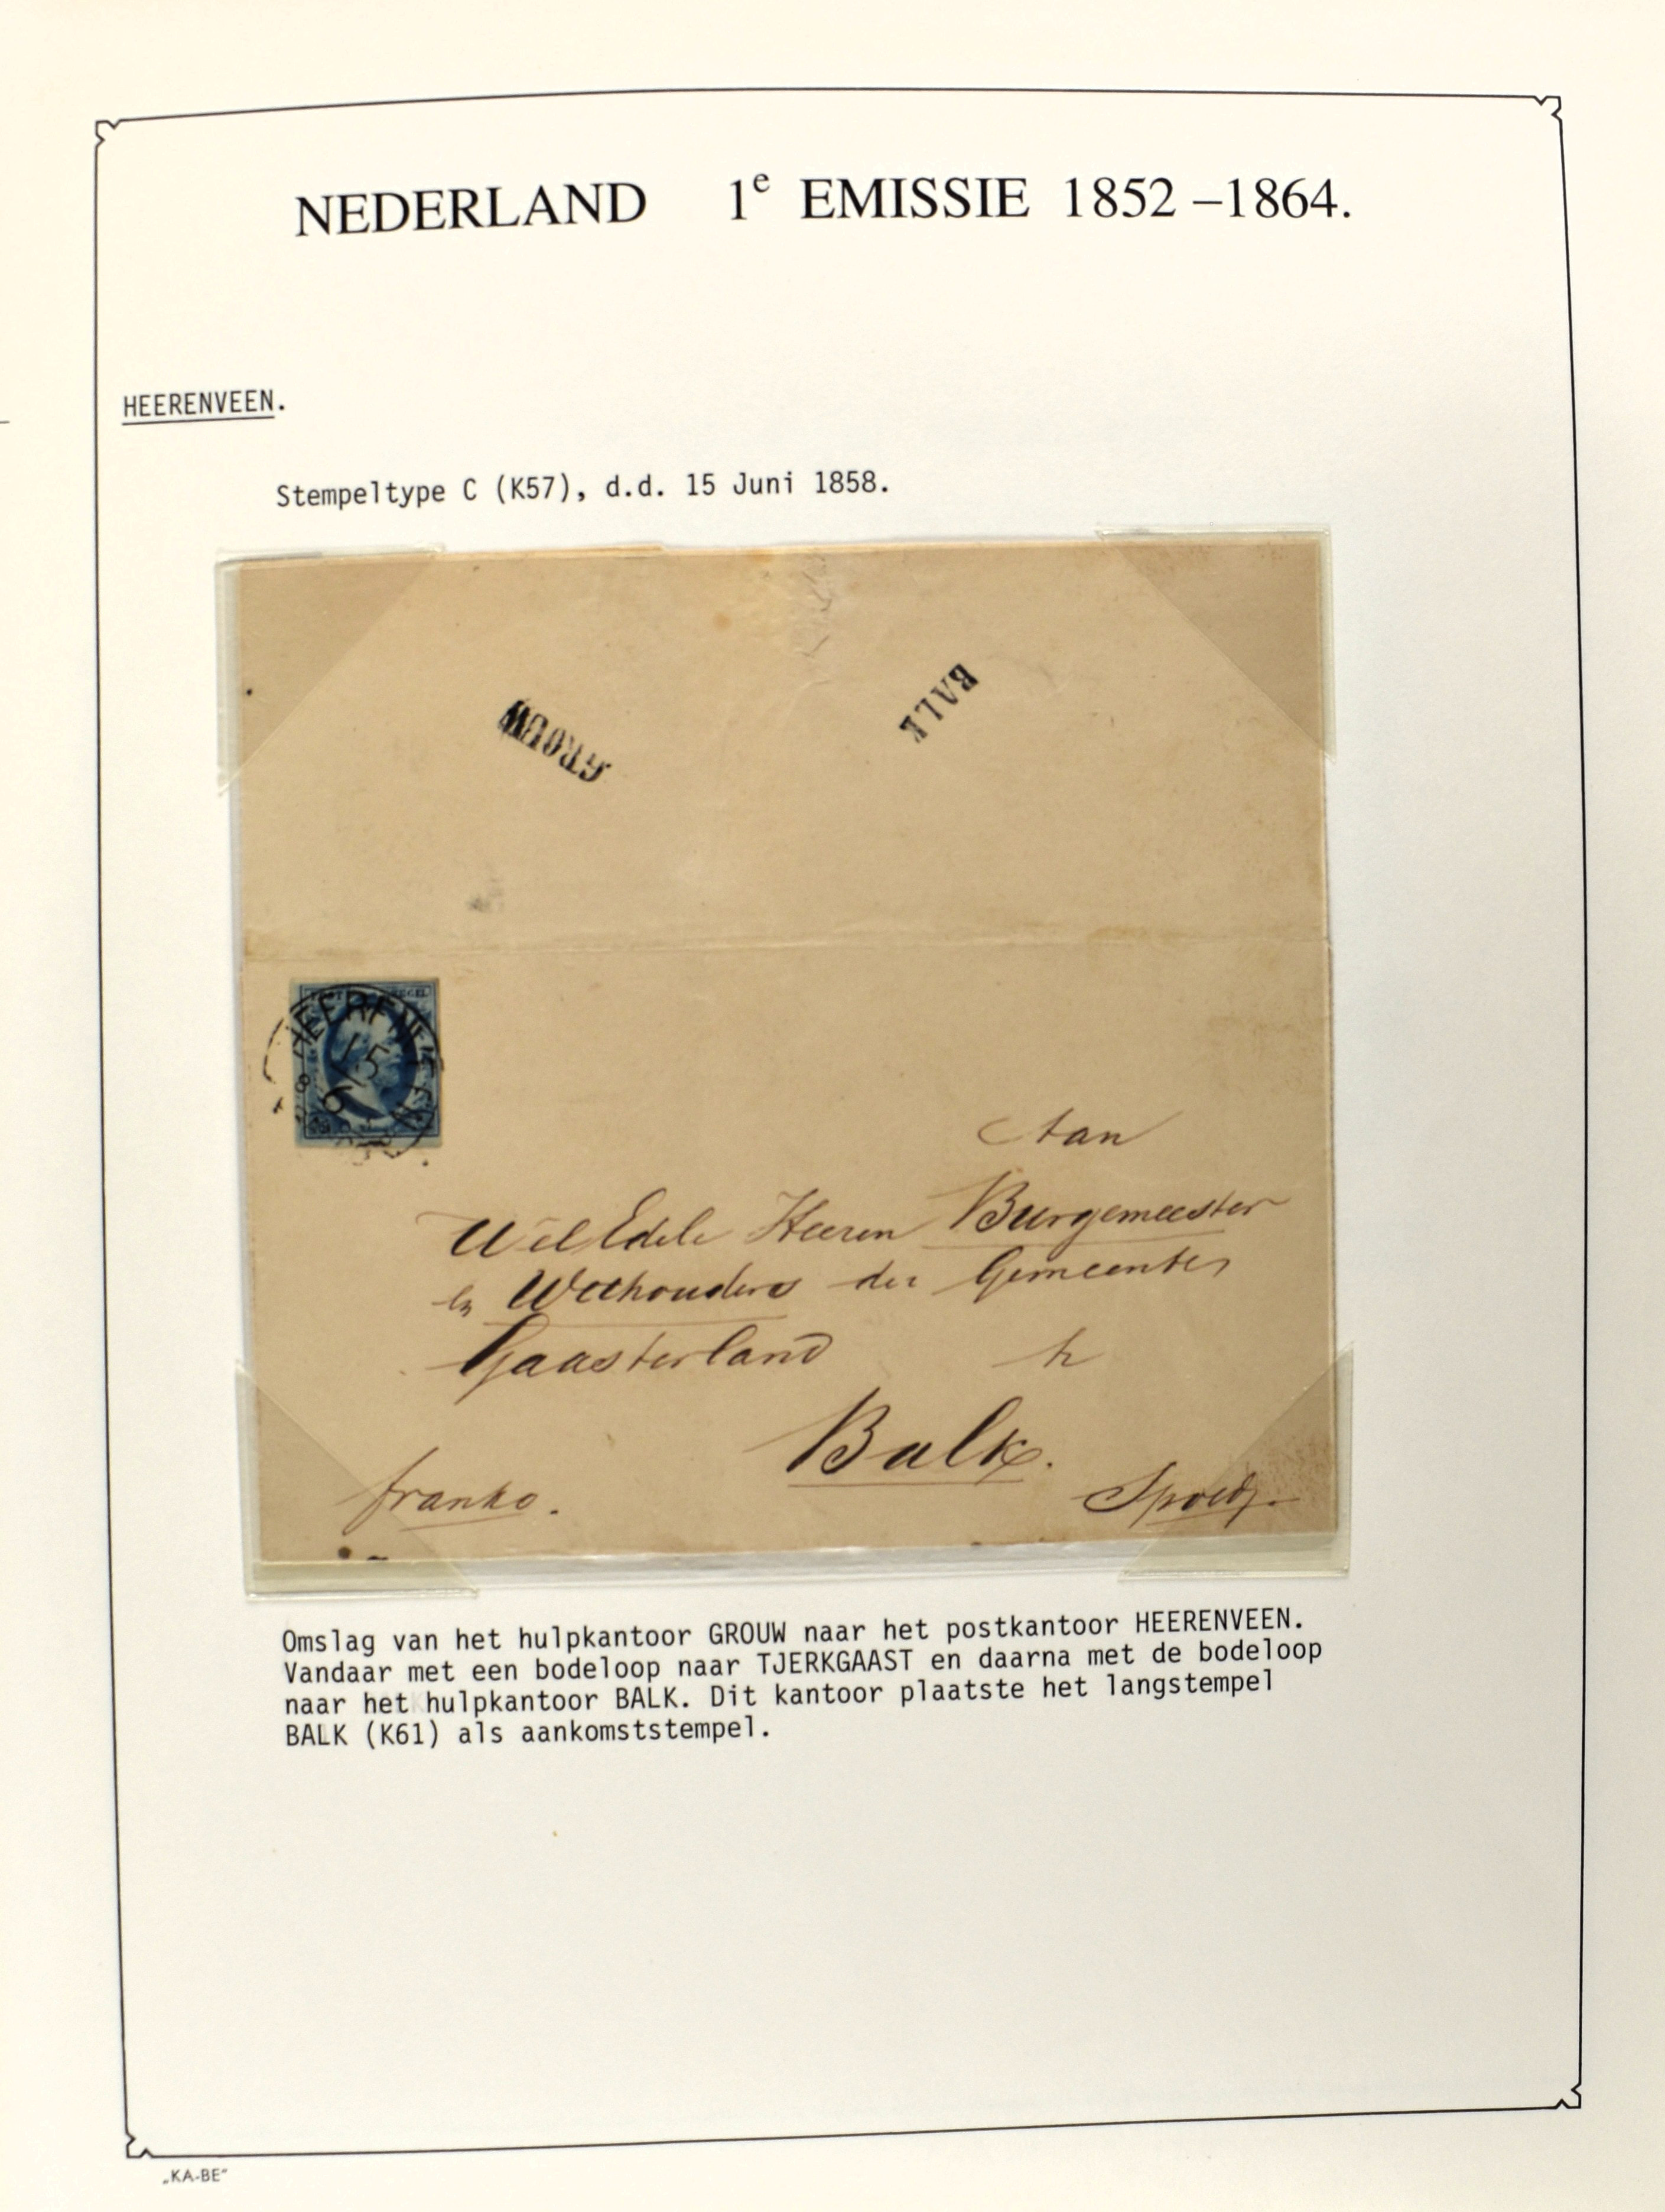 NEDERLAND 1e EMISSIE 1852-1864.
HEERENVEEN.
Stempeltype C (K57), d.d. 15 Juni 1858.
BALK
GROUW
HEERENVEEN
15
6
Aan
Wel Edele Heeren Burgemeester
en Wethouders der Gemeente
Gaasterland te
Balk.
franko.
Spoed.
Omslag van het hulpkantoor GROUW naar het postkantoor HEERENVEEN.
Vandaar met een bodeloop naar TJERKGAAST en daarna met de bodeloop
naar het hulpkantoor BALK. Dit kantoor plaatste het langstempel
BALK (K61) als aankomststempel.
„KA-BE"